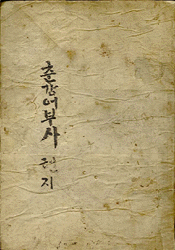 춘강어부사
권지